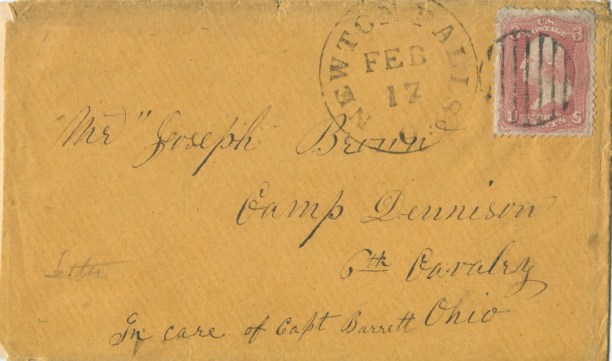 NEWTON FALLS
FEB
17
O.
U.S. POSTAGE
Mr" Joseph Brown
Camp Dennison
6th Cavalry
Ohio
In care of Capt Barrett